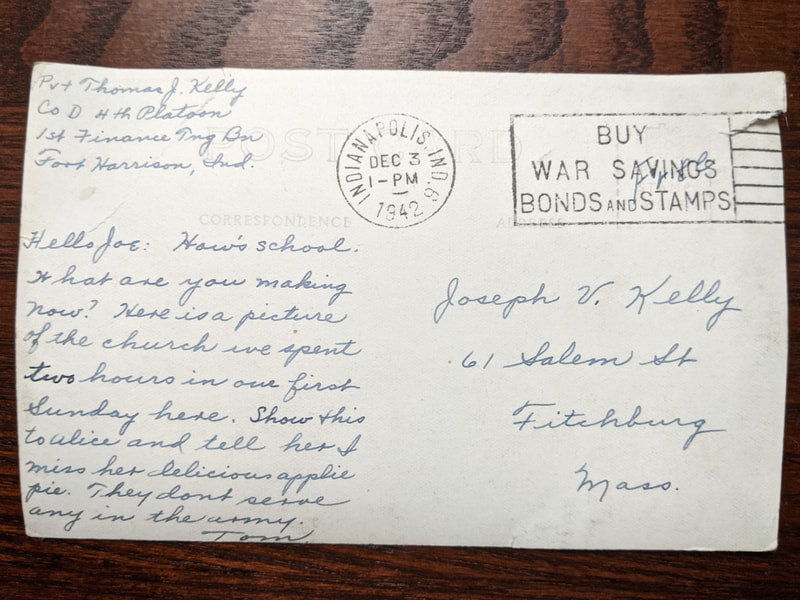 Pvt Thomas J. Kelly
Co D 4th Platoon
1st Finance Tng Bn
Fort Harrison, Ind.
POST CARD
INDIANAPOLIS, IND. 6
DEC 3
1-PM
1942
BUY
WAR SAVINGS
BONDS AND STAMPS
free
CORRESPONDENCE
ADDRESS
Hello Joe: How's school.
What are you making
now? Here is a picture
of the church we spent
two hours in our first
Sunday here. Show this
to alice and tell her I
miss her delicious applie
pie. They dont serve
any in the army.
Tom
Joseph V. Kelly
61 Salem St
Fitchburg
Mass.